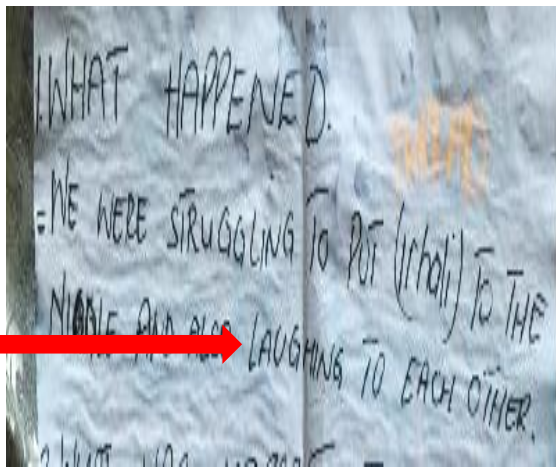 1. WHAT HAPPENED.
= WE WERE STRUGGLING TO PUT (irhali) TO THE
NIDDLE AND ALSO LAUGHING TO EACH OTHER.
2. WHAT WAS